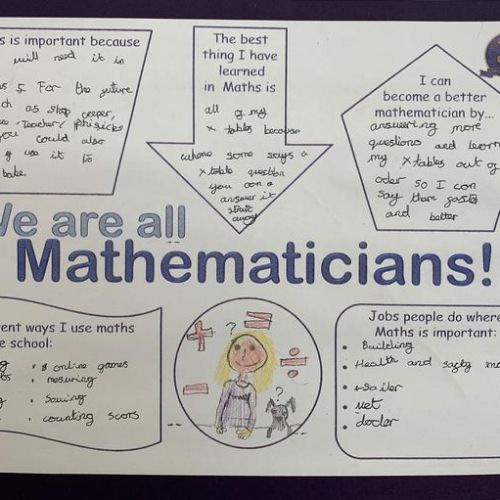 s is important because
will need it in
s For the yuture
ch as shop ceeper,
Teacher/ phisicks
you could also
use it to
bake.
The best
thing I have
learned
in Maths is
all of my
x tables because
whene some says a
x table question
you can
answer it
strait
away
I can
become a better
mathematician by...
answering more
questions and learn
my x tables out of
oder so I can
say them fast
and better
We are all
Mathematicians!
ent ways I use maths
e school:
online games
mesuring
Sawing
counting scors
?
+
=
÷
−
=
?
Jobs people do where
Maths is important:
• Building
• Health and safty
•
• vet
• docter